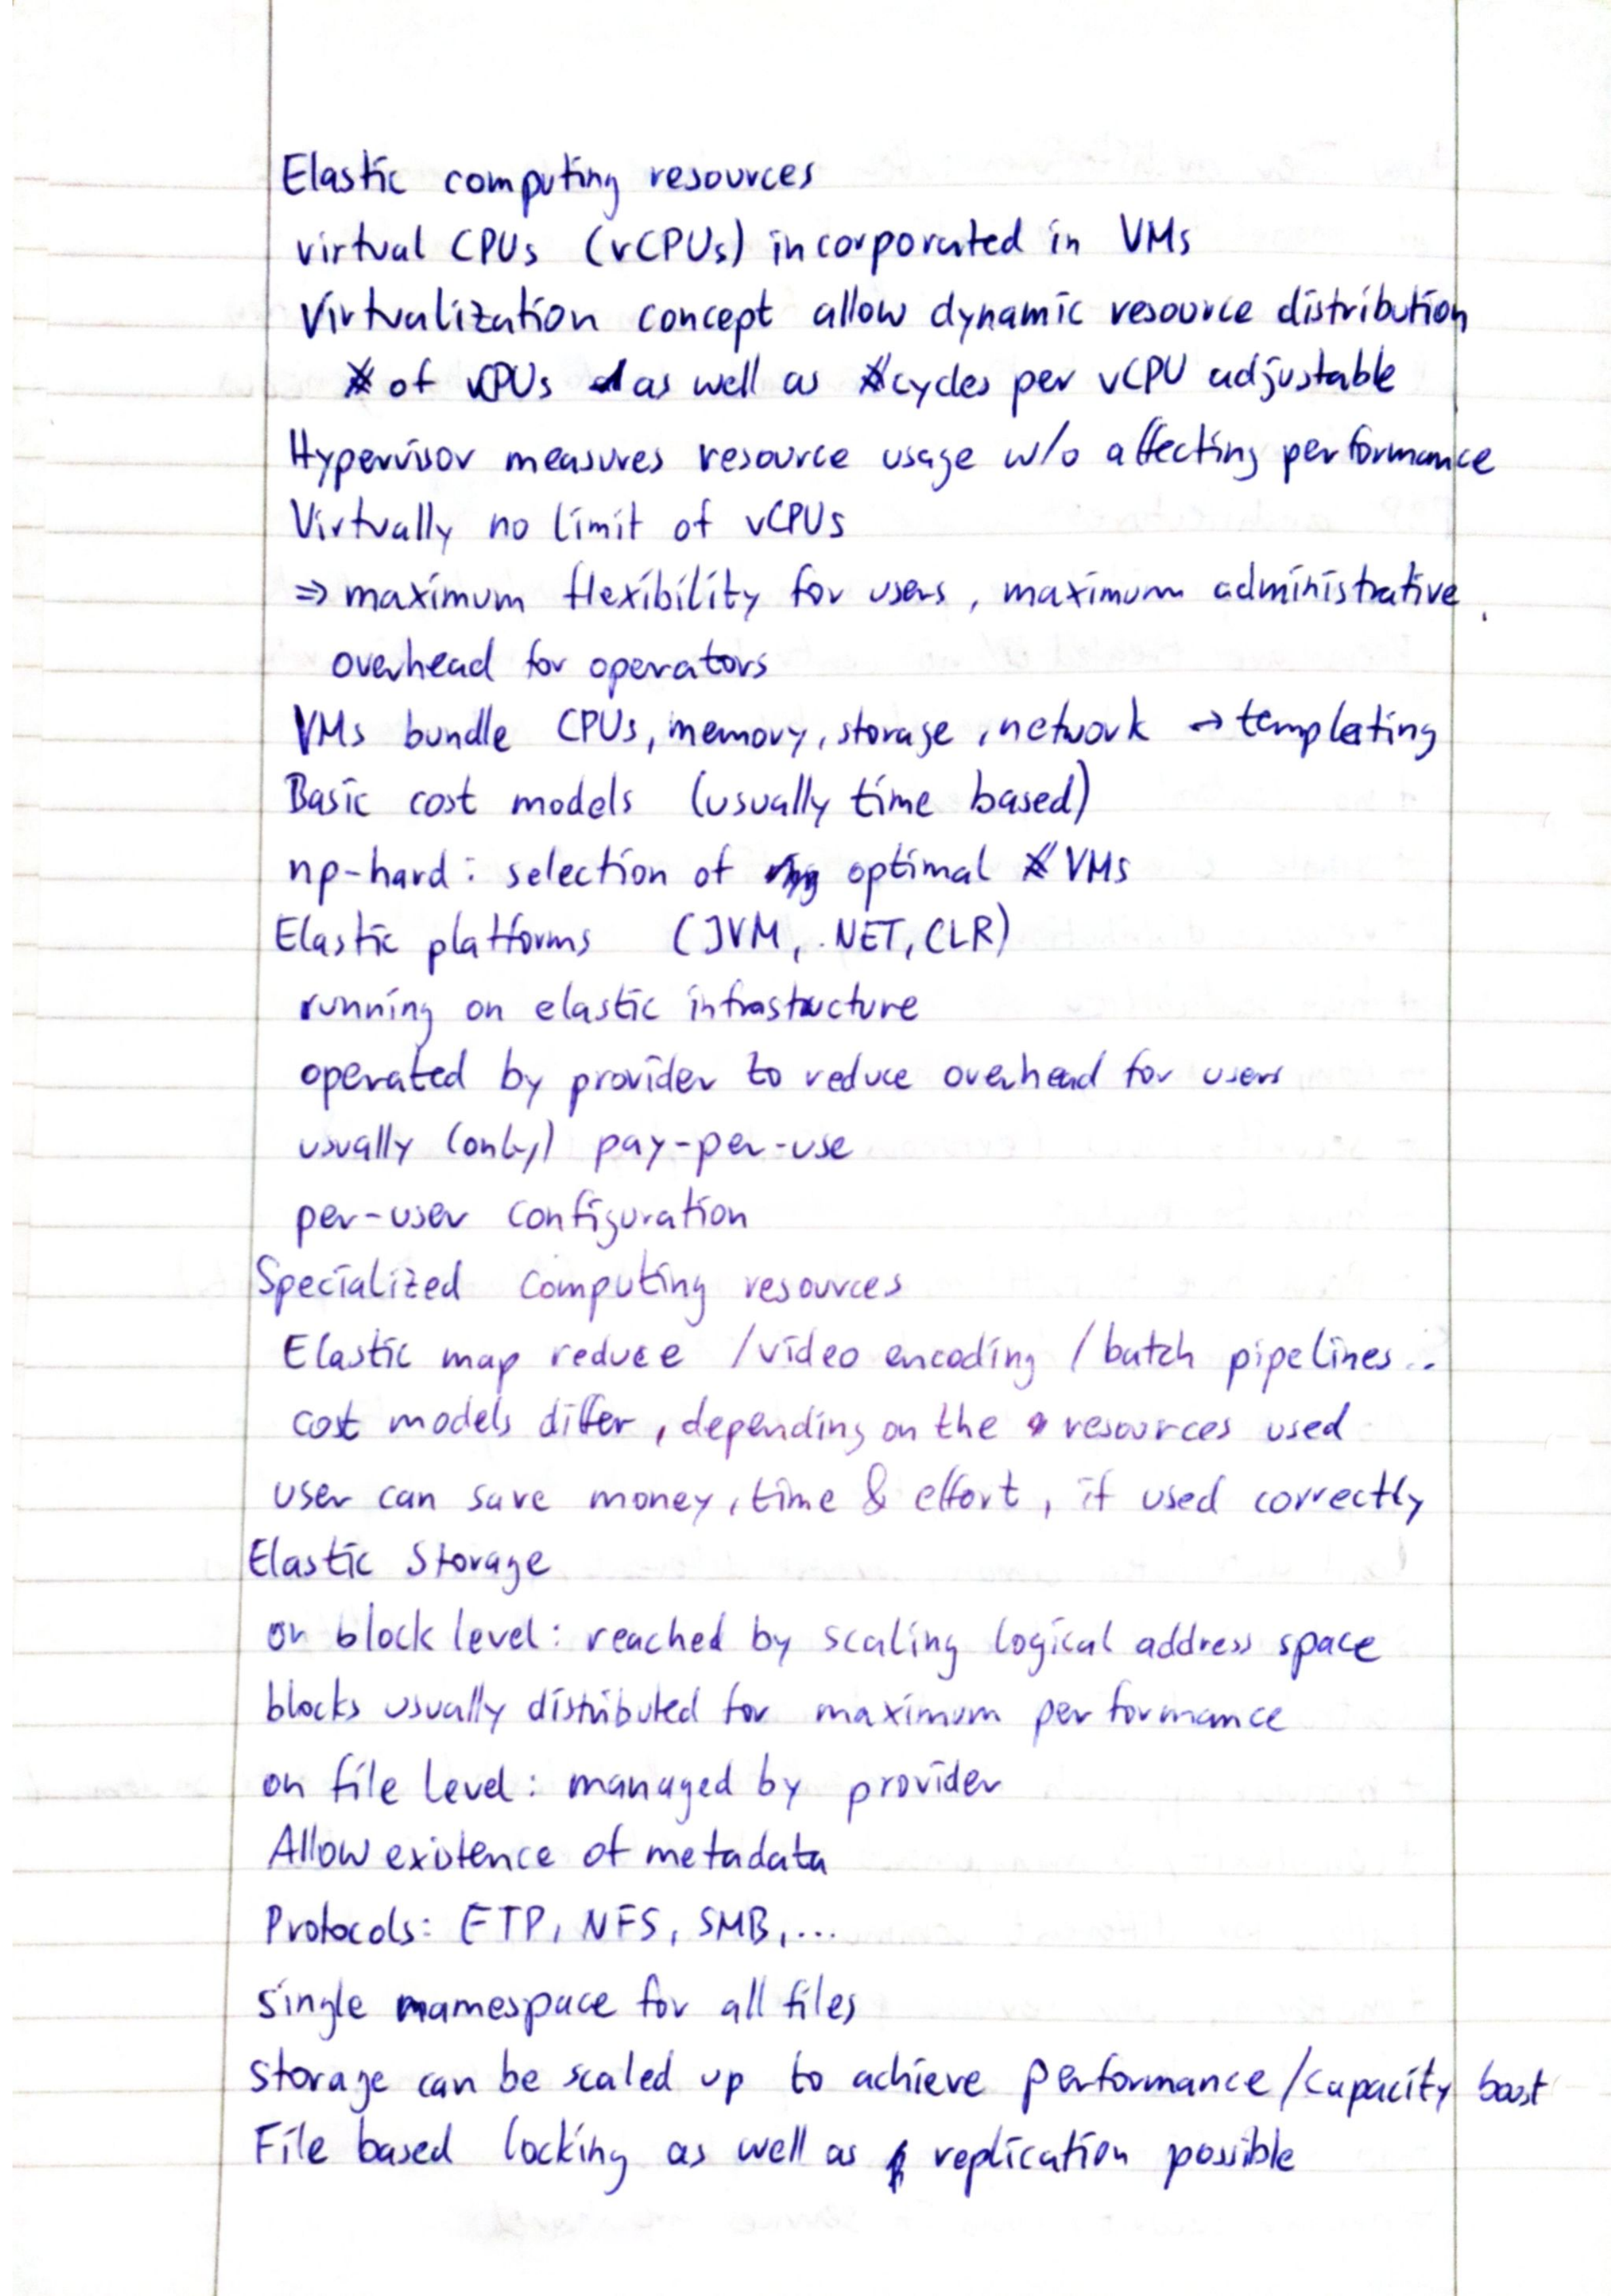 Elastic computing resources
virtual CPUs (vCPUs) incorporated in VMs
Virtualization concept allow dynamic resource distribution
# of vCPUs as well as # cycles per vCPU adjustable
Hypervisor measures resource usage w/o affecting performance
Virtually no limit of vCPUs
⇒ maximum flexibility for users, maximum administrative
overhead for operators
VMs bundle CPUs, memory, storage, network → templating
Basic cost models (usually time based)
np-hard: selection of optimal # VMs
Elastic platforms (JVM, .NET, CLR)
running on elastic infrastructure
operated by provider to reduce overhead for users
usually (only) pay-per-use
per-user configuration
Specialized computing resources
Elastic map reduce / video encoding / batch pipelines..
cost models differ, depending on the resources used
user can save money, time & effort, if used correctly
Elastic Storage
on block level: reached by scaling logical address space
blocks usually distributed for maximum performance
on file level: managed by provider
Allow existence of metadata
Protocols: FTP, NFS, SMB, ...
single namespace for all files
storage can be scaled up to achieve performance/capacity boost
File based locking as well as replication possible